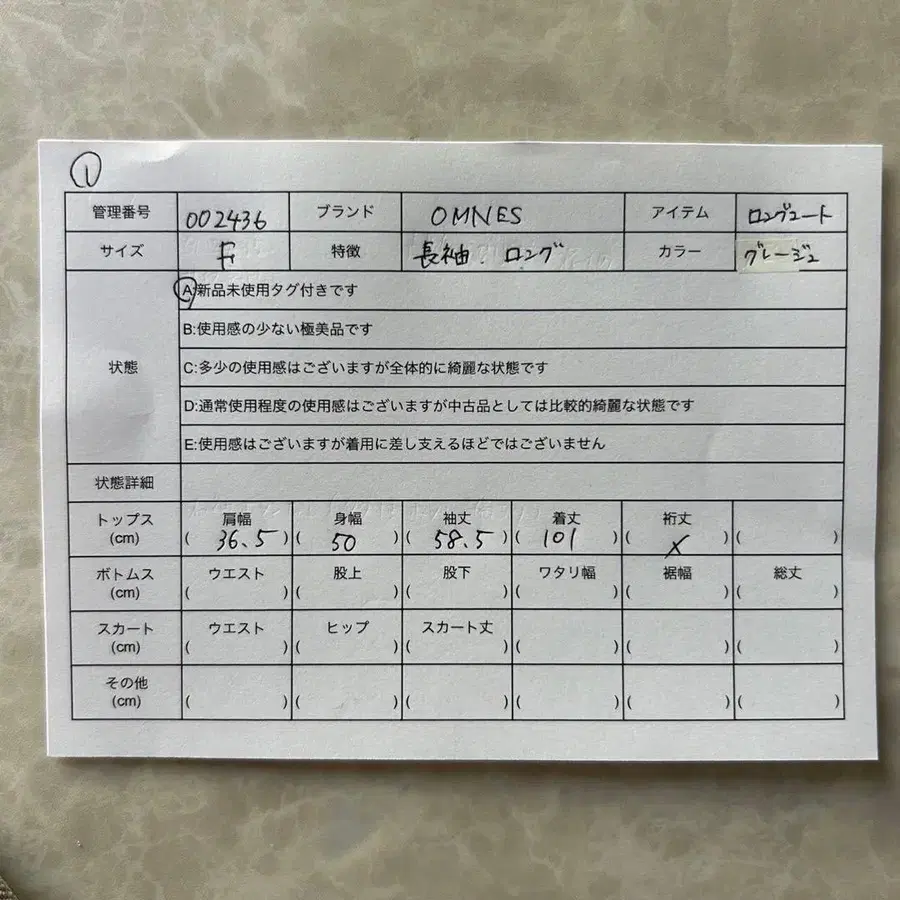 ①
管理番号 002436 ブランド OMNES アイテム ロングコート
サイズ F 特徴 長袖. ロング カラー グレージュ
A:新品未使用タグ付きです
B:使用感の少ない極美品です
状態 C:多少の使用感はございますが全体的に綺麗な状態です
D:通常使用程度の使用感はございますが中古品としては比較的綺麗な状態です
E:使用感はございますが着用に差し支えるほどではございません
状態詳細
トップス 肩幅 身幅 袖丈 着丈 裄丈
(cm) ( 36.5 ) ( 50 ) ( 58.5 ) ( 101 ) ( X ) ( )
ボトムス ウエスト 股上 股下 ワタリ幅 裾幅 総丈
(cm) ( ) ( ) ( ) ( ) ( ) ( )
スカート ウエスト ヒップ スカート丈
(cm) ( ) ( ) ( ) ( ) ( ) ( )
その他
(cm) ( ) ( ) ( ) ( ) ( ) ( )